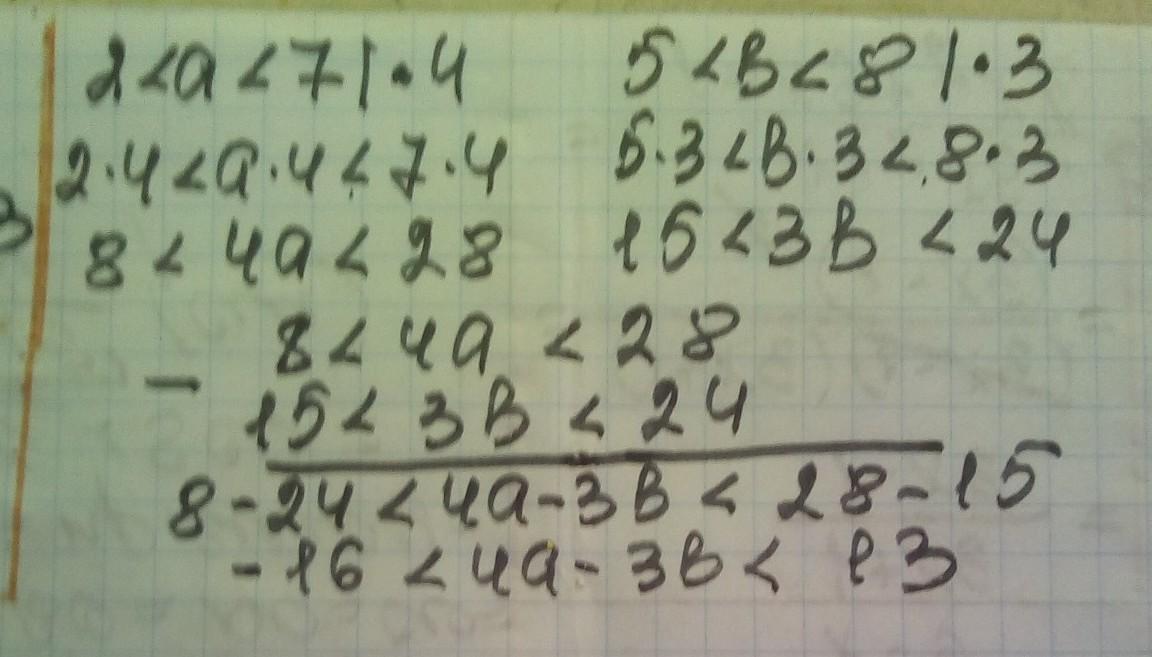 2 < a < 7 | · 4 5 < в < 8 | · 3
2 · 4 < a · 4 < 7 · 4 5 · 3 < в · 3 < 8 · 3
8 < 4a < 28 15 < 3в < 24
8 < 4a < 28
−
15 < 3в < 24
8 - 24 < 4a - 3в < 28 - 15
- 16 < 4a - 3в < 13